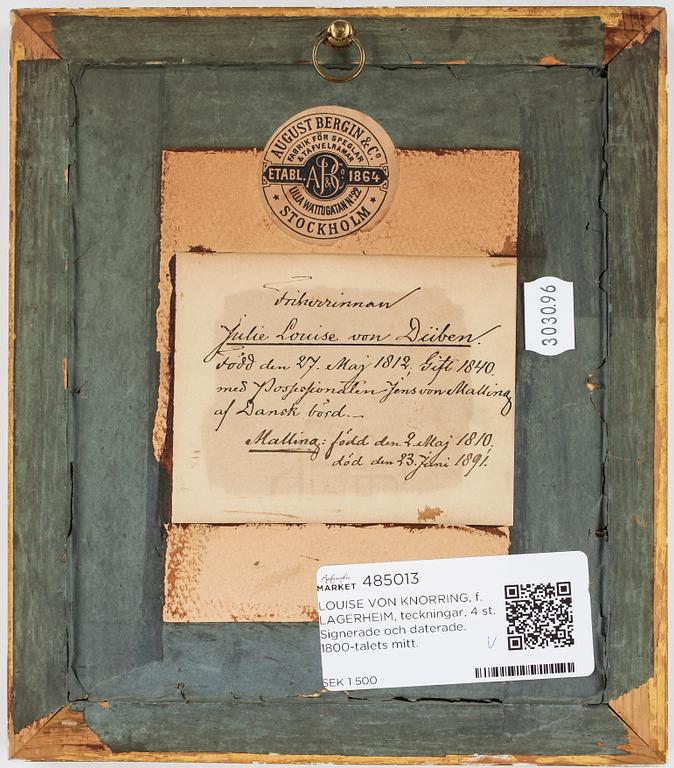 AUGUST BERGIN & Co
FABRIK FÖR SPEGLAR
& TAFVELRAMAR
ETABL. AB&Co 1864
LILLA WATTUGATAN No 22
STOCKHOLM
Friherrinnan
Julie Louise von Düben.
Född den 27. Maj 1812, Gift 1840.
med Possessionaten Jens von Malling
af Dansk börd. —
Malling: född den 2. Maj 1810.
död den 23. Juni 1891.
303096
Bukowskis
MARKET 485013
LOUISE VON KNORRING, f.
LAGERHEIM, teckningar, 4 st.
Signerade och daterade.
1800-talets mitt.
SEK 1 500